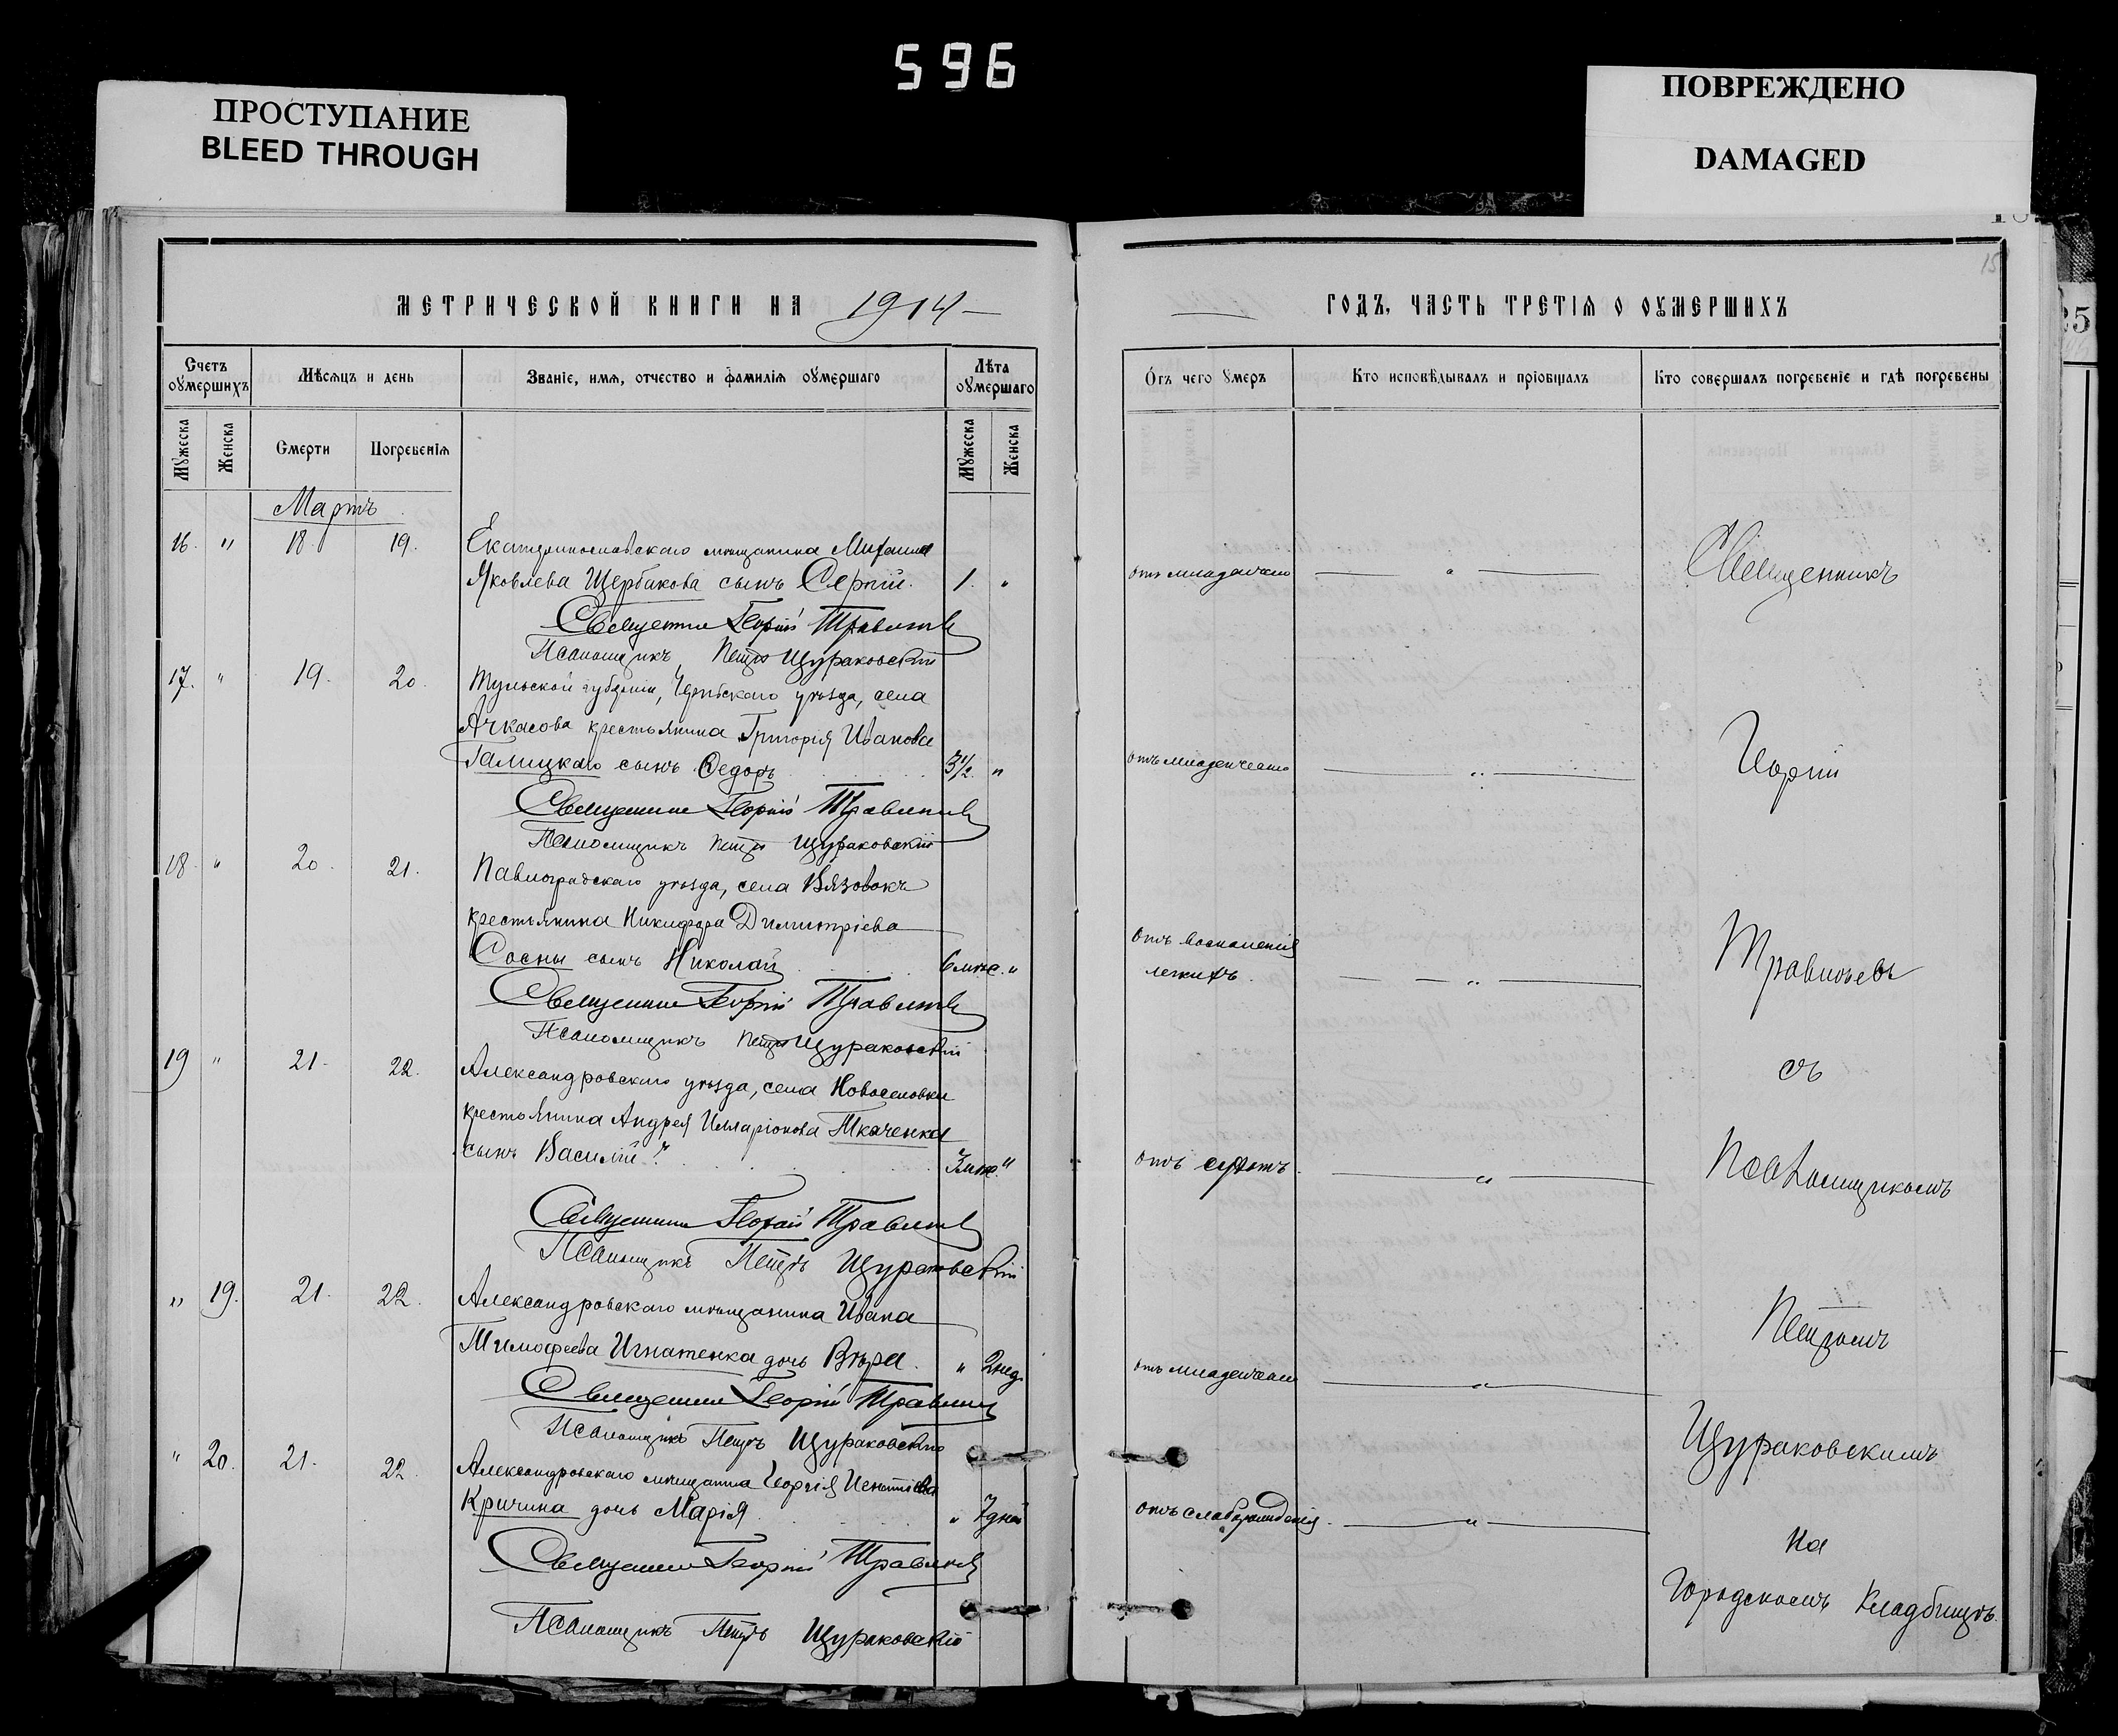 596
ПРОСТУПАНИЕ
BLEED THROUGH
ПОВРЕЖДЕНО
DAMAGED
15
25
МЕТРИЧЕСКОЙ КНИГИ НА 1914
ГОДЪ, ЧАСТЬ ТРЕТІЯ О ОУМЕРШИХЪ
Счетъ оумершихъ
Мѣсяцъ и день
Званіе, имя, отчество и фамилія оумершаго
Лѣта оумершаго
Отъ чего умеръ
Кто исповѣдывалъ и пріобщалъ
Кто совершалъ погребеніе и гдѣ погребены
Мужеска
Женска
Смерти
Погребенія
Мужеска
Женска
Мартъ
16. " 18. 19. Екатеринославскаго мѣщанина Михаила
Яковлева Щербакова сынъ Сергій. 1. " отъ младенческ. "
Священникъ Георгій Травлѣевъ
Псаломщикъ Петръ Щураковскій
17. " 19. 20. Тульской губерніи, Чернскаго уѣзда, села
Ачкасова крестьянина Григорія Иванова
Галицкаго сынъ Ѳедоръ 3½ " отъ младенческ. "
Священникъ Георгій Травлѣевъ
Псаломщикъ Петръ Щураковскій
18. " 20. 21. Павлоградскаго уѣзда, села Вязовокъ
крестьянина Никифора Димитріева
Сосны сынъ Николай 6 мѣс. " отъ воспаленія
легкихъ. "
Священникъ Георгій Травлѣевъ
Псаломщикъ Петръ Щураковскій
19 " 21. 22. Александровскаго уѣзда, села Новоселовки
крестьянина Андрея Илларіонова Ткаченка
сынъ Василій. 3 мѣс. " отъ "
Священникъ Георгій Травлѣевъ
Псаломщикъ Петръ Щураковскій
" 19. 21. 22. Александровскаго мѣщанина Ивана
Тимофеева Игнатенка дочь Вѣра. " 2 нед. отъ младенческ. "
Священникъ Георгій Травлѣевъ
Псаломщикъ Петръ Щураковскій
" 20. 21. 22. Александровскаго мѣщанина Георгія
Кричина дочь Марія " 7 дней отъ слаборожденія. "
Священникъ Георгій Травлѣевъ
Псаломщикъ Петръ Щураковскій
Священникъ
Георгій
Травлѣевъ
съ
Псаломщикомъ
Петромъ
Щураковскимъ
на
Городскомъ Кладбищѣ.